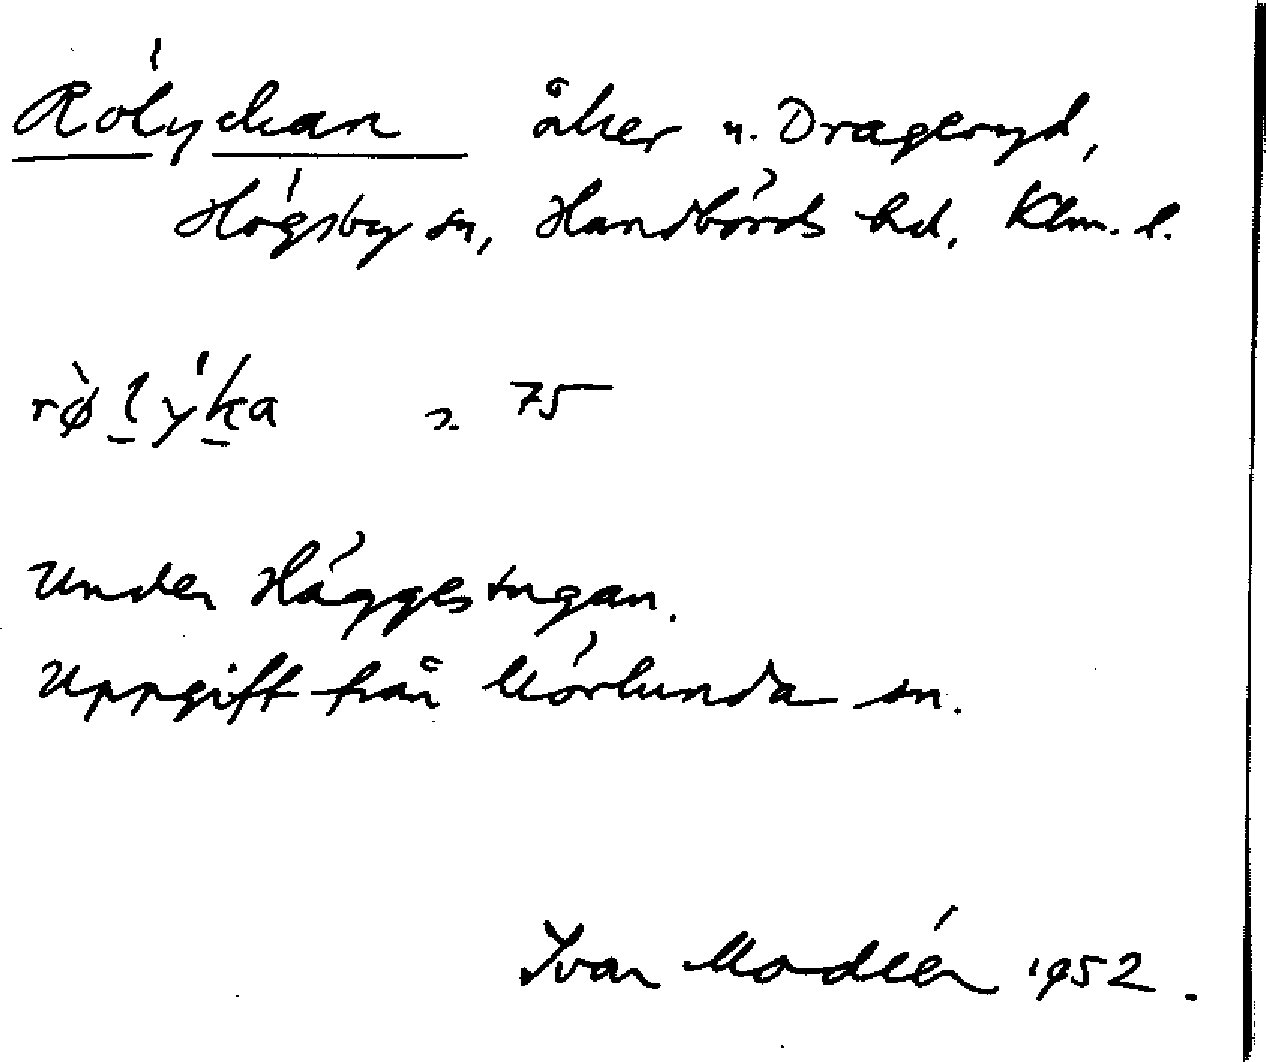 Rölyckan åker u. Drageryd,
Högsby sn, Handbörds hd, Klm. l.
rø̀l̠y̍k̠a 2. 75
Under Häggestugan.
Uppgift från Mörlunda sn.
Ivar Modéer 1952.